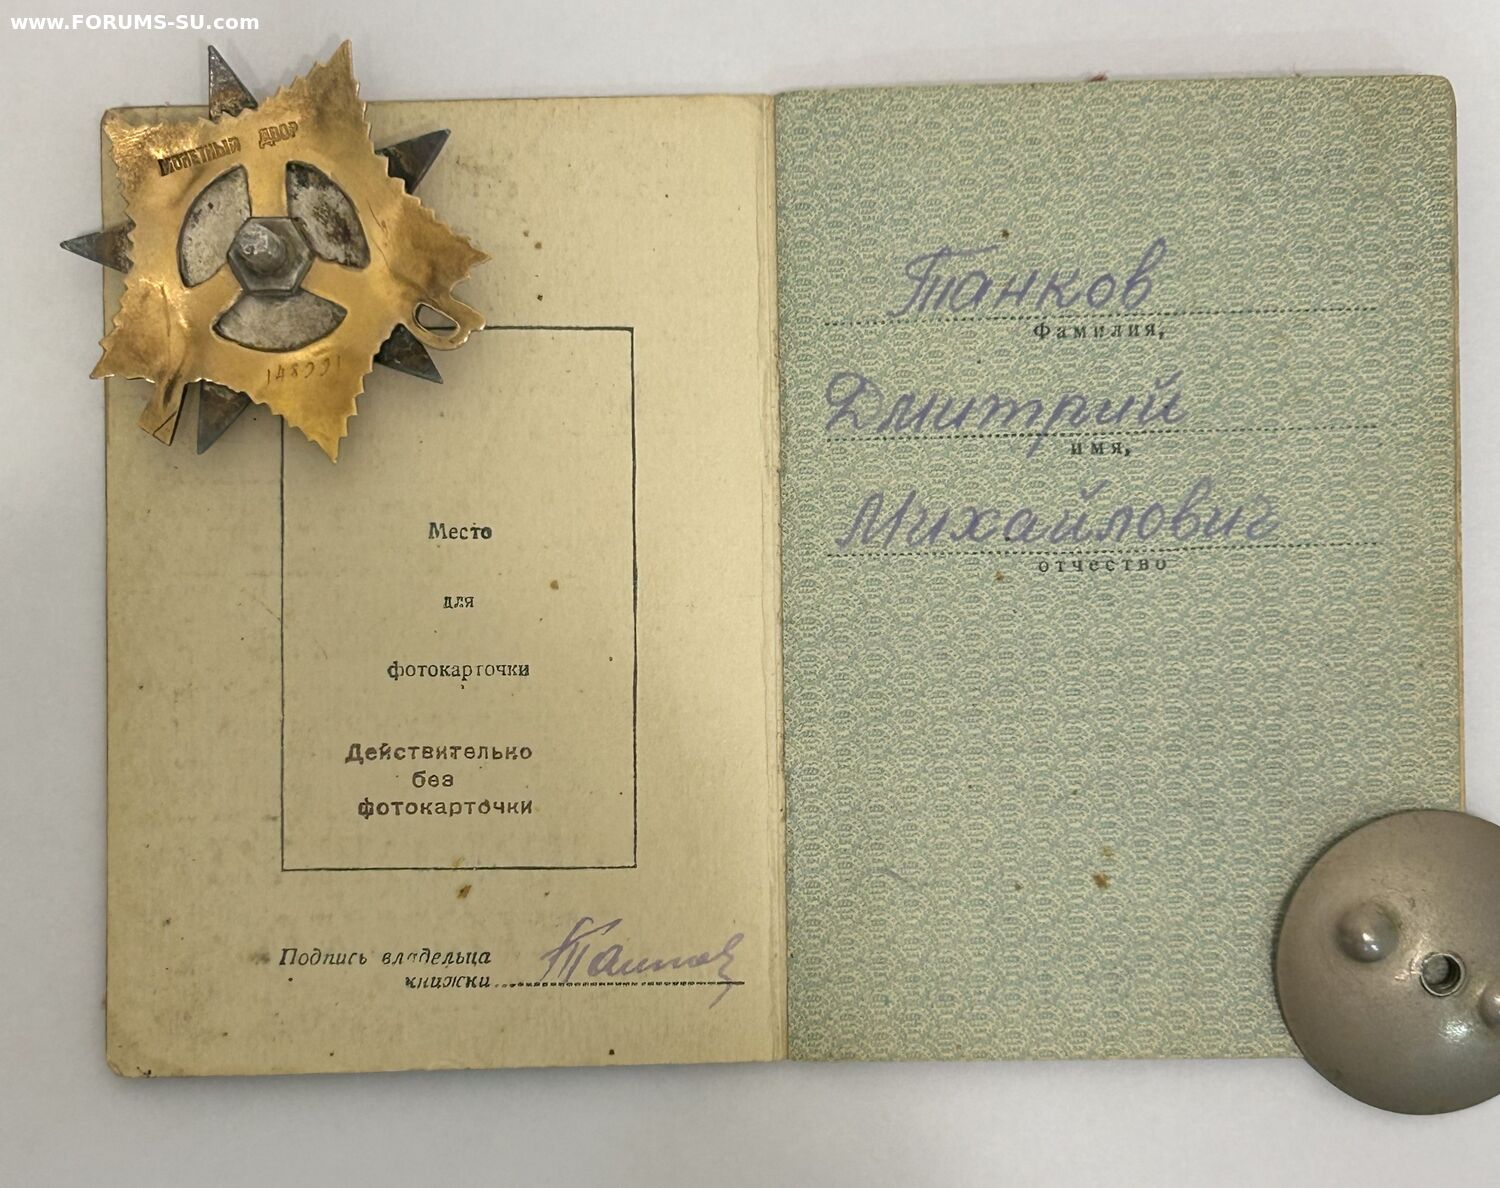 www.FORUMS-SU.com
МОНЕТНЫЙ ДВОР
Место
для
фотокарточки
Действительно
без
фотокарточки
Подпись владельца
книжки
Танков
Фамилия,
Дмитрий
имя,
Михайлович
отчество